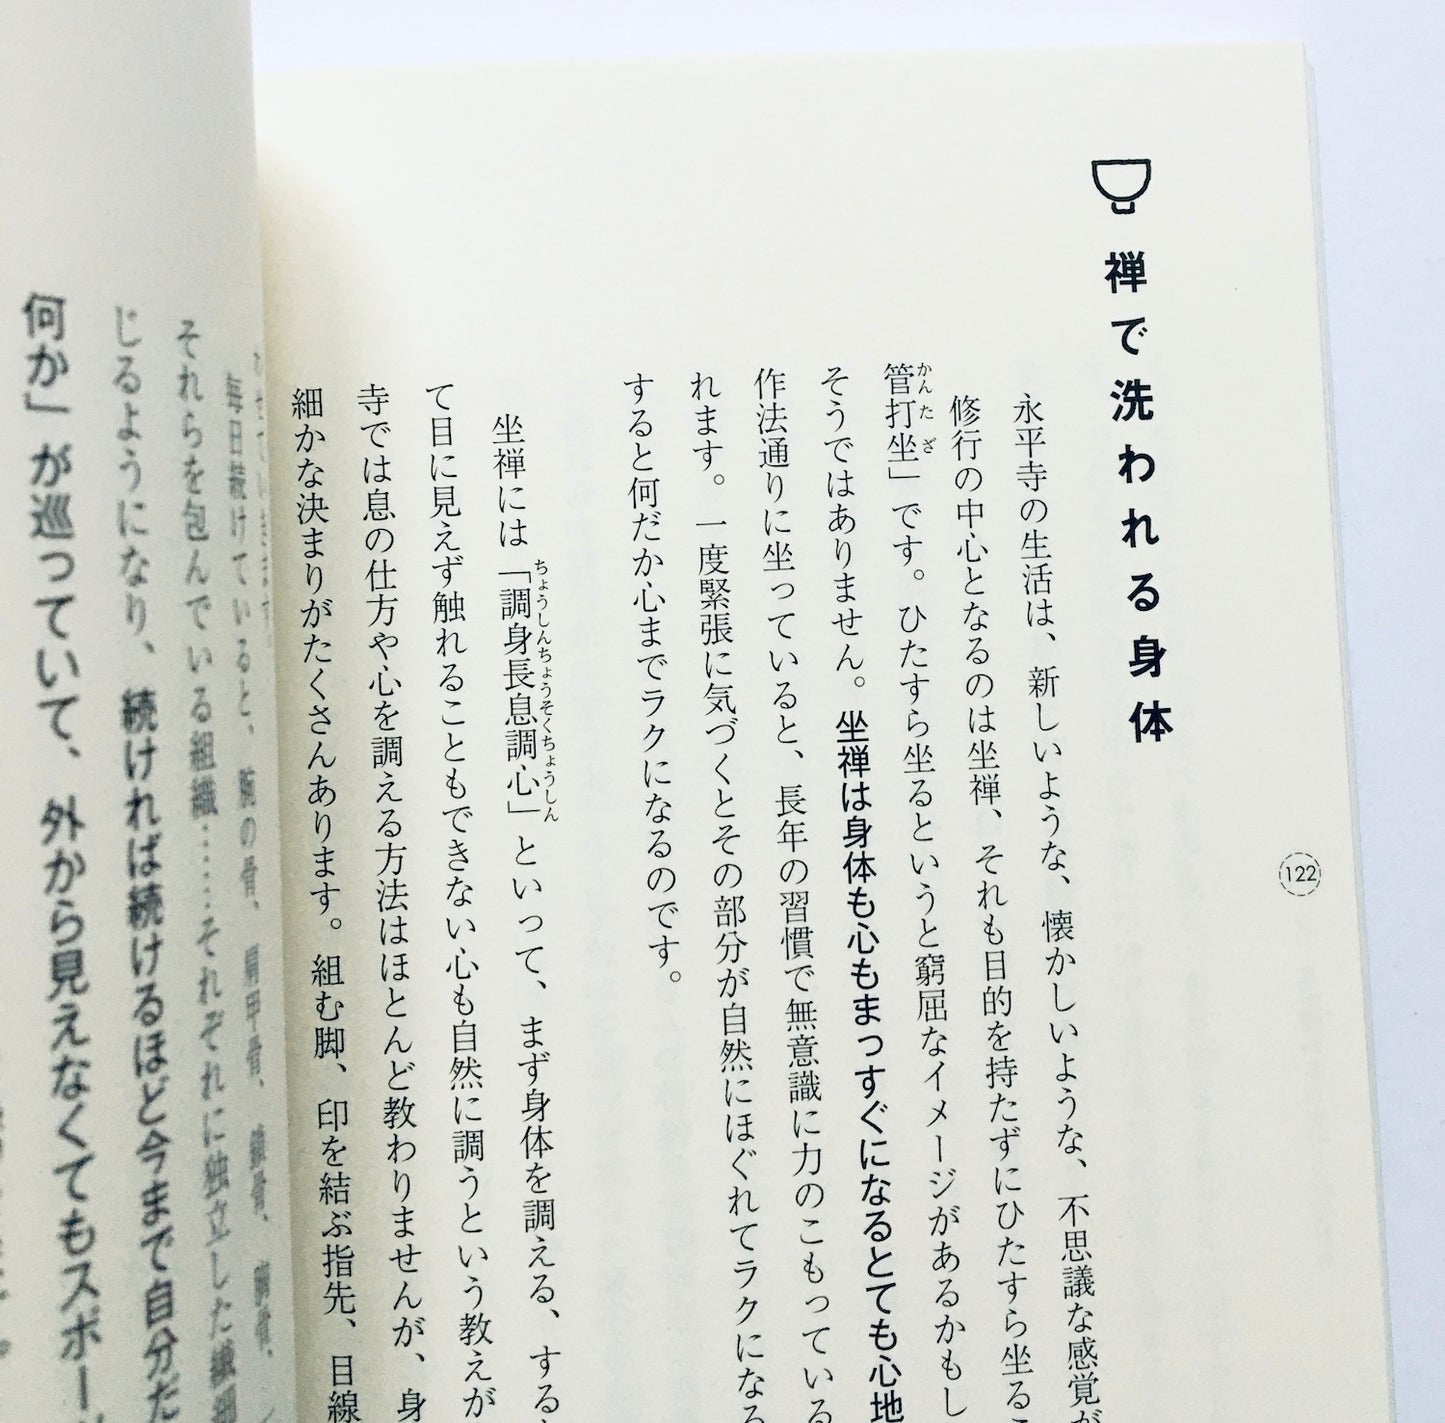 禅で洗われる身体
永平寺の生活は、新しいような、懐かしいような、不思議な感覚が
修行の中心となるのは坐禅、それも目的を持たずにひたすら坐るこ
管打坐」です。ひたすら坐るというと窮屈なイメージがあるかもし
かんたざ
そうではありません。坐禅は身体も心もまっすぐになるとても心地
作法通りに坐っていると、長年の習慣で無意識に力のこもっている
れます。一度緊張に気づくとその部分が自然にほぐれてラクになる
すると何だか心までラクになるのです。
坐禅には「調身長息調心」といって、まず身体を調える、する
ちょうしんちょうそくちょうしん
て目に見えず触れることもできない心も自然に調うという教えが
寺では息の仕方や心を調える方法はほとんど教わりませんが、身
細かな決まりがたくさんあります。組む脚、印を結ぶ指先、目線
122
毎日続けていると、腕の骨、肩甲骨、鎖骨、
それらを包んでいる組織……それぞれに独立した繊細
じるようになり、続ければ続けるほど今まで自分だ
何か」が巡っていて、外から見えなくてもスポー